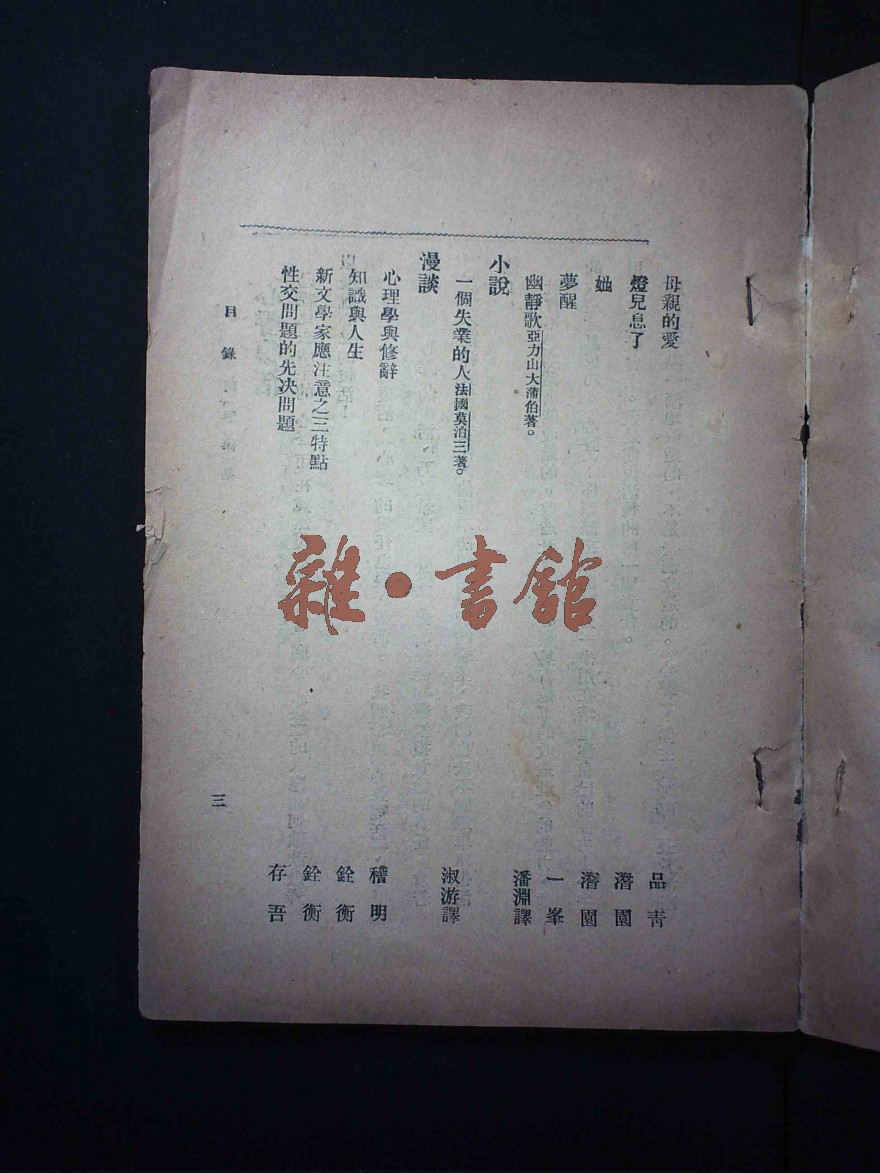 母親的愛 品青
燈兒息了 濳園
她 濳園
夢醒 一峯
幽靜歌亞力山大蒲伯著。 潘淵譯
小說
一個失業的人法國莫泊三著。 淑游譯
漫談
心理學與修辭 稽明
知識與人生 銓衡
新文學家應注意之三特點 銓衡
性交問題的先决問題 存吾
目錄
三
雜·書館